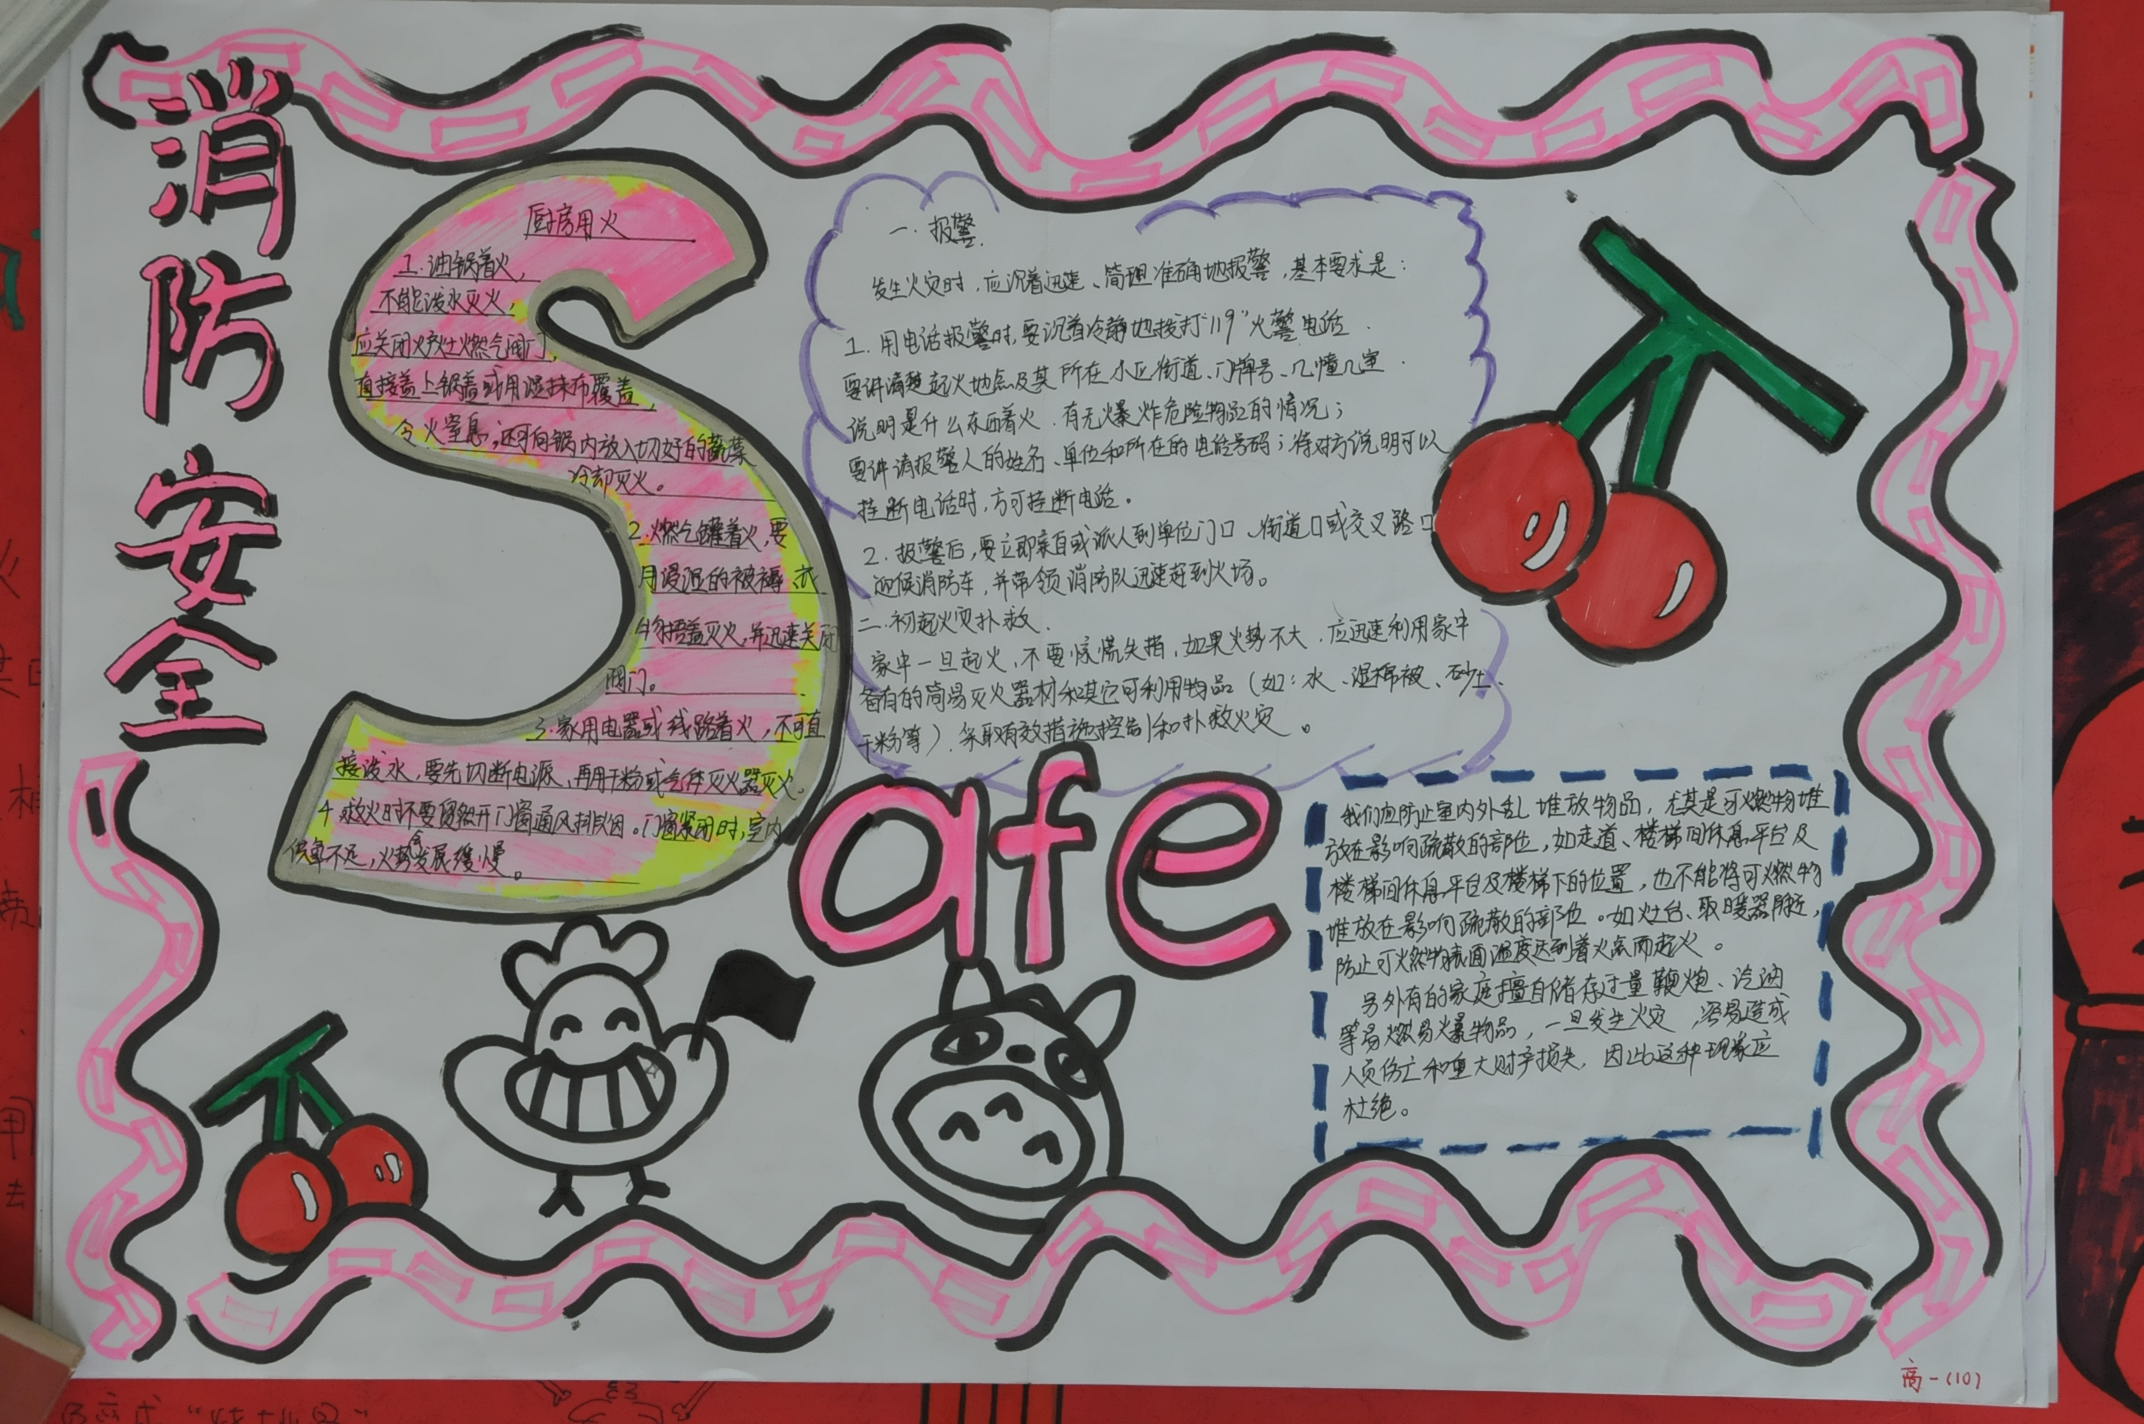 消防安全
Safe
厨房用火
1.油锅着火，
不能泼水灭火，
应关闭炉灶燃气阀门，
直接盖上锅盖或用湿抹布覆盖，
令火窒息，还可向锅内放入切好的蔬菜
冷却灭火。
2.燃气罐着火，要
用浸湿的被褥、衣
物捂盖灭火，并迅速关闭
阀门。
3.家用电器或线路着火，不可直
接泼水，要先切断电源、再用干粉或气体灭火器灭火。
4.救火时不要贸然开门窗通风排烟。门窗紧闭时，室内
供单不足，火势发展缓慢。
会
一.报警.
发生火灾时，应沉着迅速、简理准确地报警，基本要求是：
1.用电话报警时，要沉着冷静地拨打"119"火警电话.
要讲清楚起火地点及其所在小区街道、门牌号、几幢几室.
说明是什么东西着火.有无爆炸危险物品的情况；
要讲清报警人的姓名、单位和所在的电话号码；待对方说明可以
挂断电话时，方可挂断电话。
2.报警后，要立即亲自或派人到单位门口、街道口或交叉路口
迎候消防车，并带领消防队迅速赶到火场。
二.初起火灾扑救.
家中一旦起火，不要惊慌失措，如果火势不大.应迅速利用家中
备有的简易灭火器材和其它可利用物品（如：水、湿棉被、砂土、
干粉等）.采取有效措施控制和扑救火灾。
我们应防止室内外乱堆放物品，尤其是可燃物堆
放在影响疏散的部位，如走道、楼梯间休息平台及
楼梯间休息平台及楼梯下的位置，也不能将可燃物
堆放在影响疏散的部位。如灶台、取暖器附近，
防止可燃物表面温度达到着火点而起火。
另外有的家庭擅自储存过量鞭炮、汽油
等易燃易爆物品，一旦发生火灾，容易造成
人员伤亡和重大财产损失，因此这种现象应
杜绝。
高一(10)